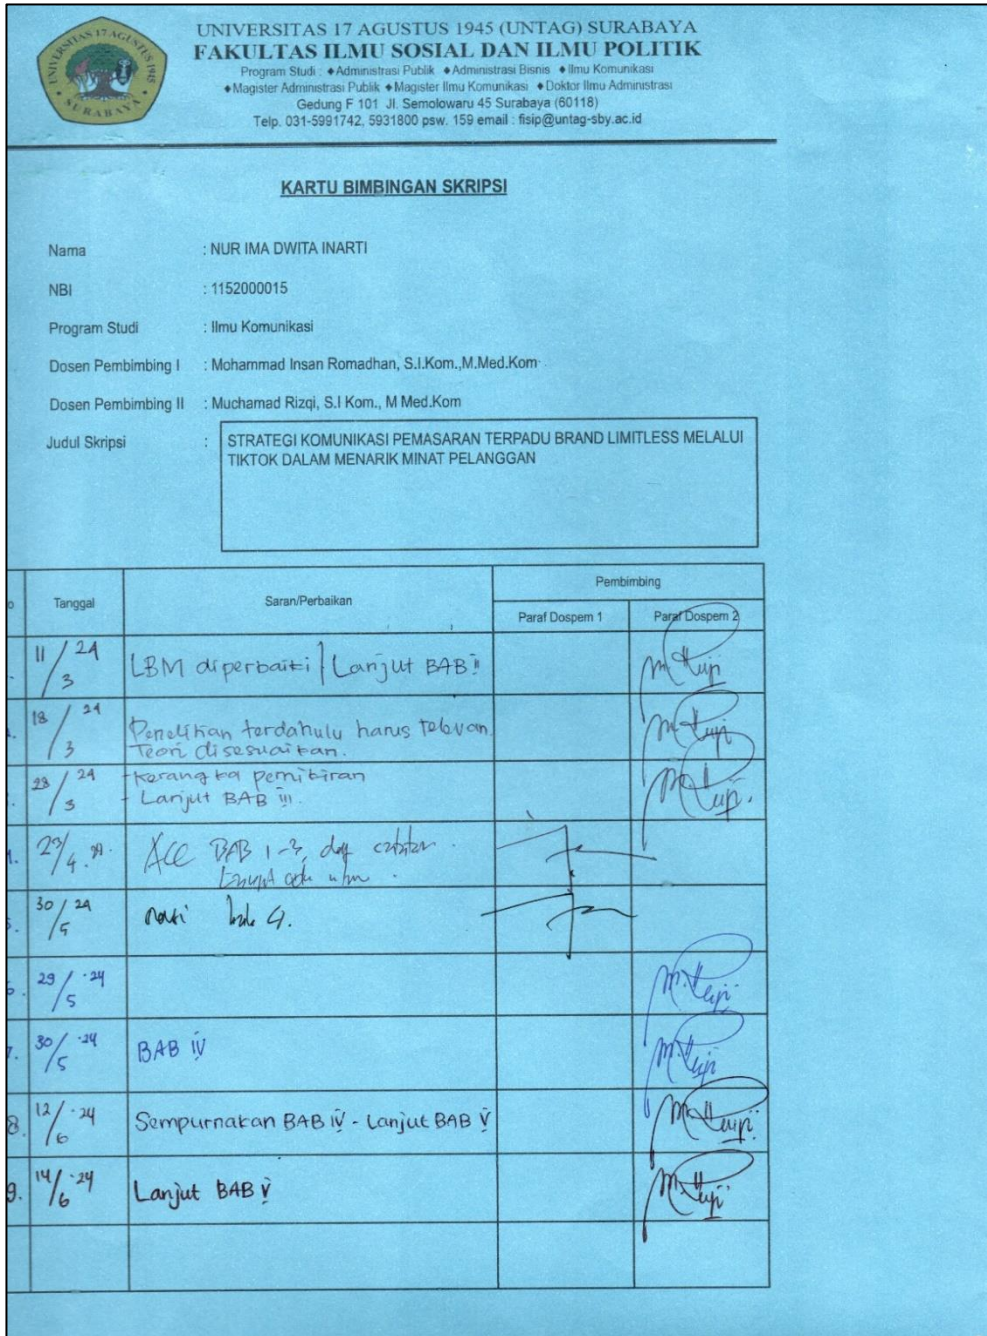 UNIVERSITAS 17 AGUSTUS 1945 (UNTAG) SURABAYA
FAKULTAS ILMU SOSIAL DAN ILMU POLITIK
Program Studi : ◆Administrasi Publik ◆Administrasi Bisnis ◆Ilmu Komunikasi
◆Magister Administrasi Publik ◆Magister Ilmu Komunikasi ◆Doktor Ilmu Administrasi
Gedung F 101 Jl. Semolowaru 45 Surabaya (60118)
Telp. 031-5991742, 5931800 psw. 159 email : fisip@untag-sby.ac.id
UNIVERSITAS 17 AGUSTUS 1945
SURABAYA
KARTU BIMBINGAN SKRIPSI
Nama : NUR IMA DWITA INARTI
NBI : 1152000015
Program Studi : Ilmu Komunikasi
Dosen Pembimbing I : Mohammad Insan Romadhan, S.I.Kom.,M.Med.Kom
Dosen Pembimbing II : Muchamad Rizqi, S.I Kom., M Med.Kom
Judul Skripsi : STRATEGI KOMUNIKASI PEMASARAN TERPADU BRAND LIMITLESS MELALUI
TIKTOK DALAM MENARIK MINAT PELANGGAN
o Tanggal Saran/Perbaikan Pembimbing
Paraf Dospem 1 Paraf Dospem 2
11/3 24 LBM diperbaiki / Lanjut BAB II
18/3 24 Penelitian terdahulu harus relevan.
Teori disesuaikan.
28/3 24 - Kerangka pemikiran
- Lanjut BAB III.
23/4 24. ACC BAB 1-3,
30/5 24 4.
29/5 -24
7. 30/5 -24 BAB IV
8. 12/6 -24 Sempurnakan BAB IV - Lanjut BAB V
9. 14/6 -24 Lanjut BAB V